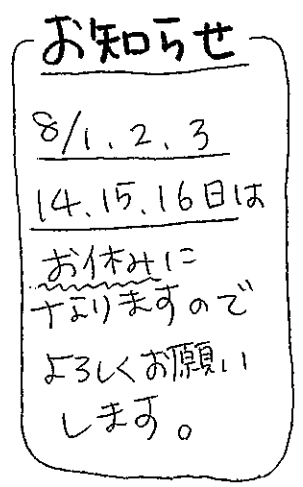 お知らせ
8/1、2、3
14、15、16日は
お休みに
なりますので
よろしくお願い
します。